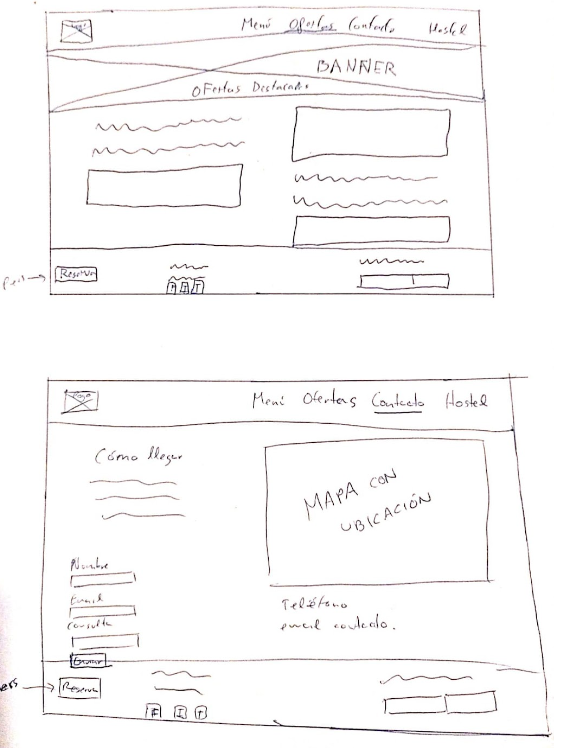 Logo
Menú Ofertas Contacto Hostel
BANNER
Ofertas Destacadas
Reservar
F I T
Logo
Menú Ofertas Contacto Hostel
Cómo llegar
MAPA CON
UBICACIÓN
Nombre
Email
Consulta
Enviar
Teléfono
email contacto.
Reservar
F I T